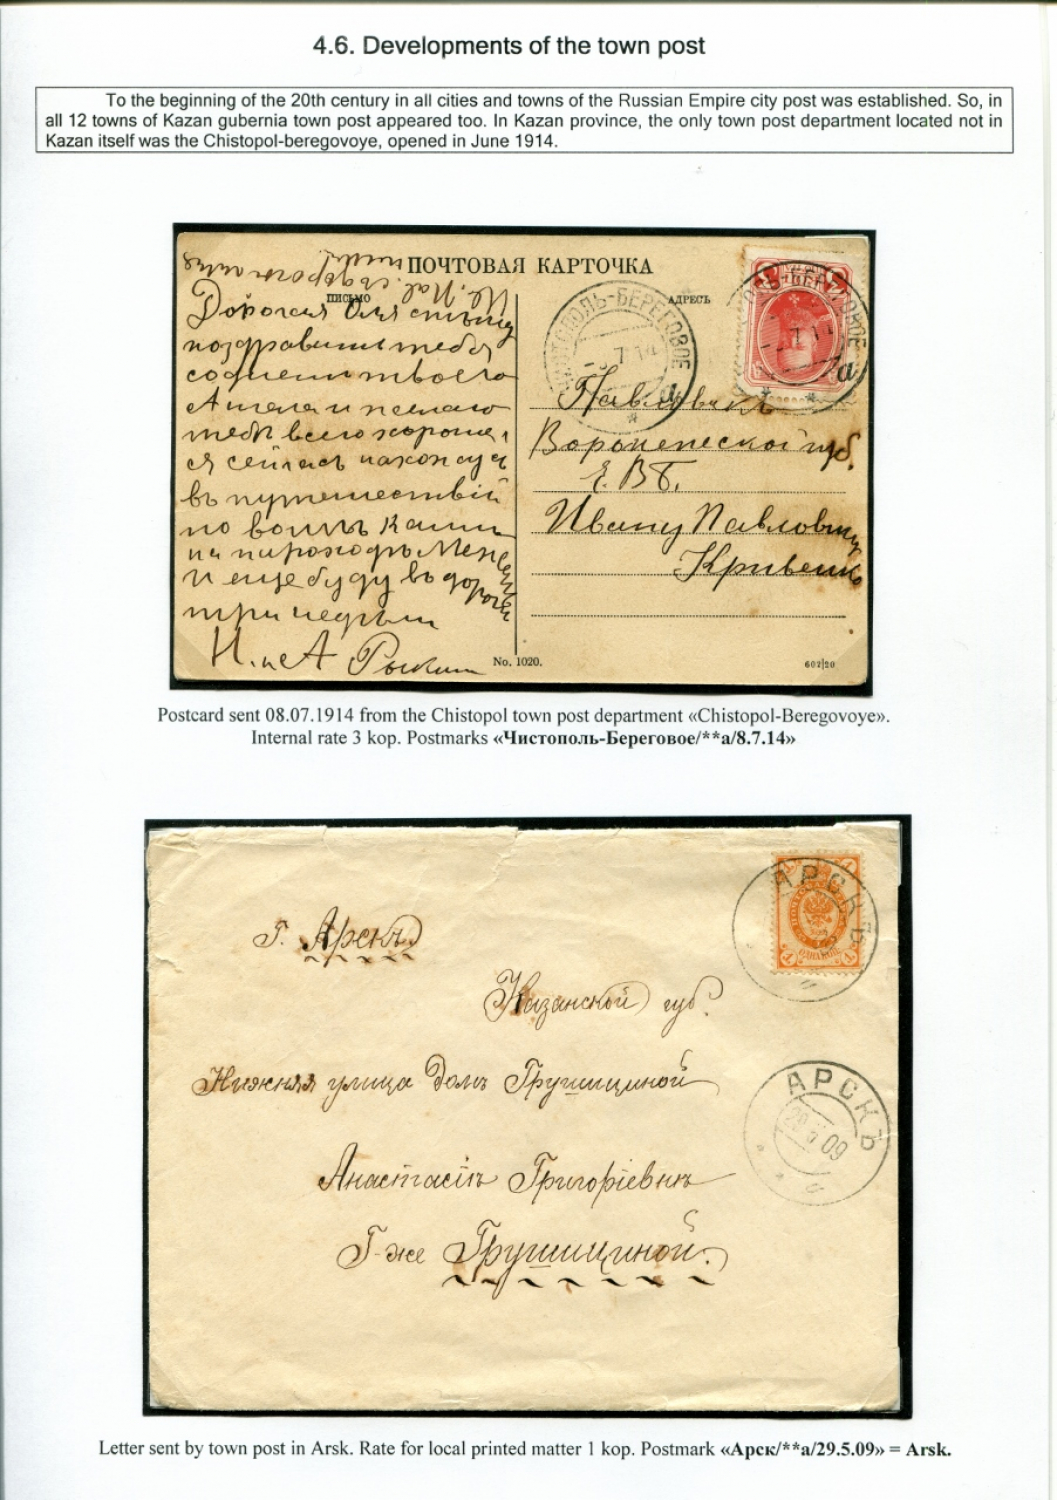 4.6. Developments of the town post
To the beginning of the 20th century in all cities and towns of the Russian Empire city post was established. So, in
all 12 towns of Kazan gubernia town post appeared too. In Kazan province, the only town post department located not in
Kazan itself was the Chistopol-beregovoye, opened in June 1914.
ПОЧТОВАЯ КАРТОЧКА
ПИСЬМО
АДРЕСЪ
Дорогая Оля
поздравить тебя
твоего
Ангела и желаю
тебе всего хорошаго
сейчасъ нахожусь
въ путешествiи
по Каме
на пароходѣ
и еще буду въ дороге
три недѣли
Н. и А
ЧИСТОПОЛЬ-БЕРЕГОВОЕ
7 14
а
Павловскъ
Воронежской губ.
Е. В Б.
Ивану Павловичу
Кривенко
No. 1020.
602|20
Postcard sent 08.07.1914 from the Chistopol town post department «Chistopol-Beregovoye».
Internal rate 3 kop. Postmarks «Чистополь-Береговое/**а/8.7.14»
АРСКЪ
Г. Арскъ.
Казанской губ.
Нижняя улица Домъ Грушициной
АРСКЪ
29 5 09
а
Анастасiи Григорiевнѣ
Г-же Грушициной.
Letter sent by town post in Arsk. Rate for local printed matter 1 kop. Postmark «Арск/**а/29.5.09» = Arsk.